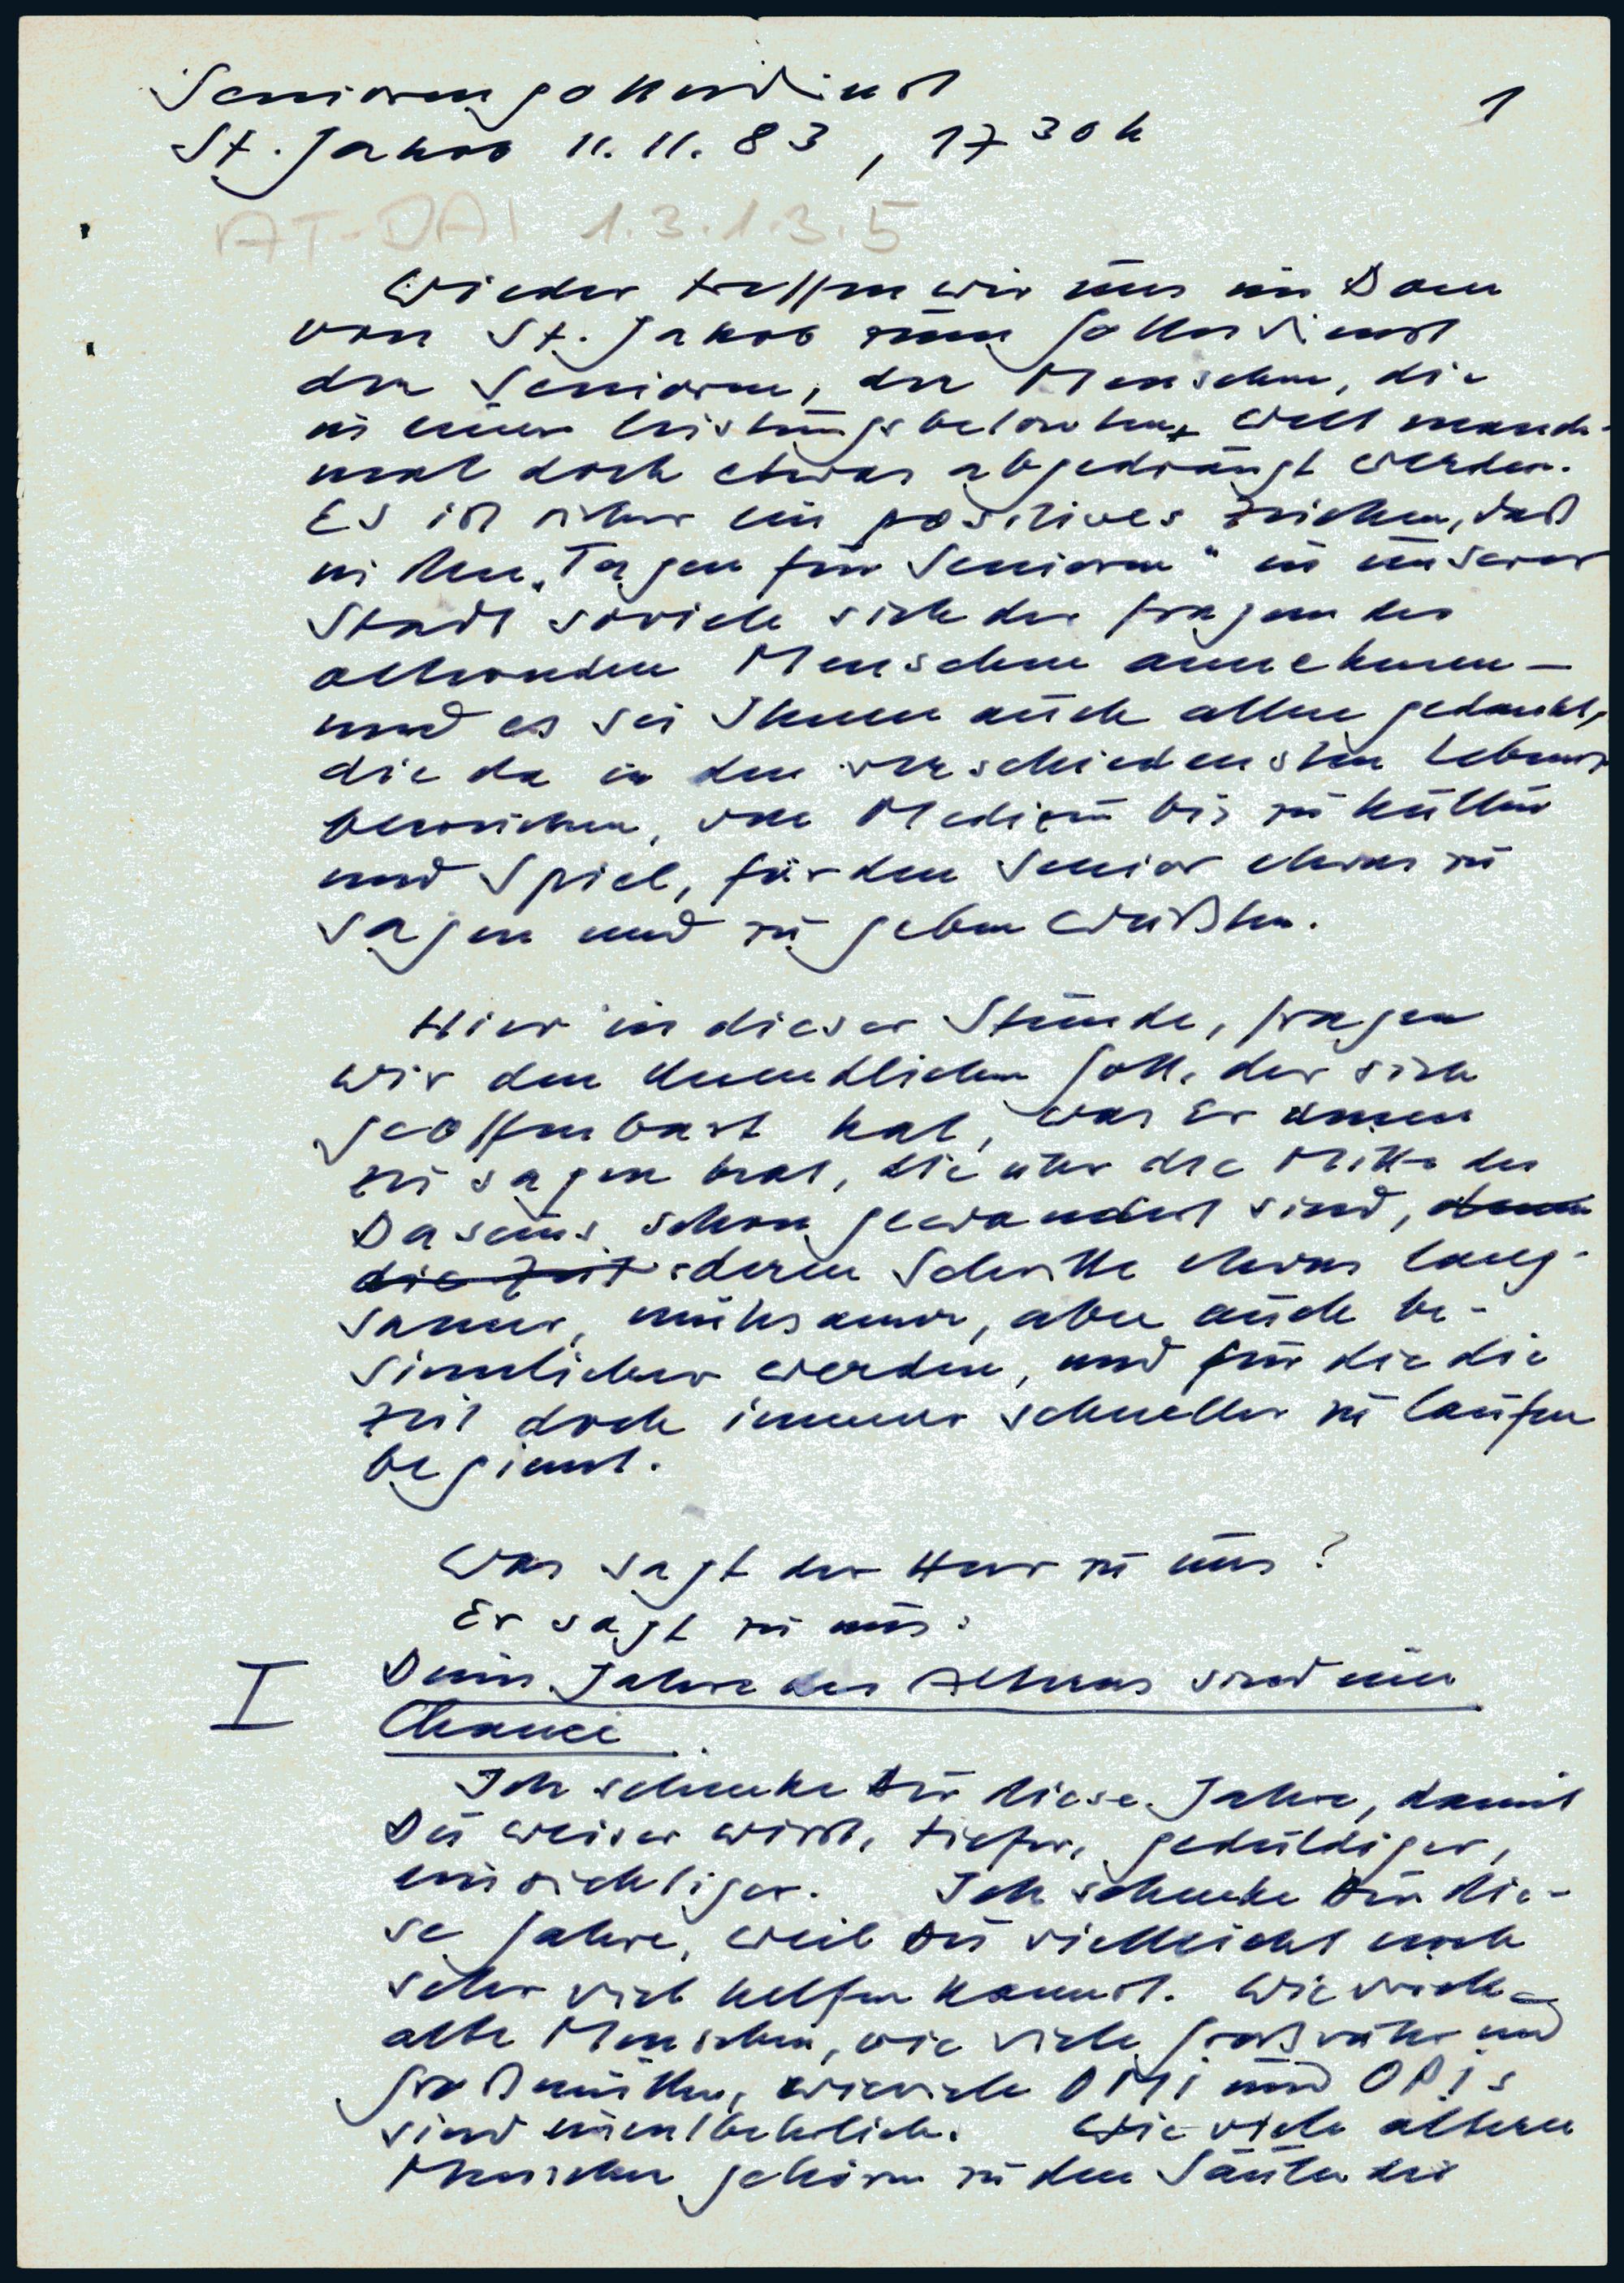 Seniorengottesdienst
1
St. Jakob 11. 11. 83, 17 30 h
AT-DAI 1.3.1.3.5
Wieder treffen wir uns im Dom
von St. Jakob zum Gottesdienst
der Senioren, der Menschen, die
in einer leistungsbetonten Welt manch-
mal doch etwas abgedrängt werden.
Es ist sicher ein positives Zeichen, daß
in den „Tagen für Senioren" in unserer
Stadt soviele sich der Fragen des
alternden Menschen annehmen –
und es sei Ihnen auch allen gedankt,
die da in den verschiedensten Lebens-
bereichen, von Medizin bis zu Kultur
und Spiel, für den Senior etwas zu
sagen und zu geben wußten.
Hier in dieser Stunde, fragen
wir den Unendlichen Gott, der sich
geoffenbart hat, was Er denen
zu sagen hat, die über die Mitte des
Daseins schon gewandert sind, denen
die Zeit deren Schritte etwas lang-
samer, mühsamer, aber auch be-
sinnlicher werden, und für die die
Zeit doch immer schneller zu laufen
beginnt.
Was sagt der Herr zu uns?
Er sagt zu uns:
I Deine Jahre des Alterns sind eine
Chance.
Ich schenke Dir diese Jahre, damit
Du weiser wirst, tiefer, geduldiger,
einsichtiger. Ich schenke Dir die-
se Jahre, weil Du vielleicht noch
sehr viel helfen kannst. Wie viele
alte Menschen, wie viele Großväter und
Großmütter, wieviele OMi und OPIs
sind unentbehrlich. Wie viele ältere
Menschen gehören zu den Säulen der